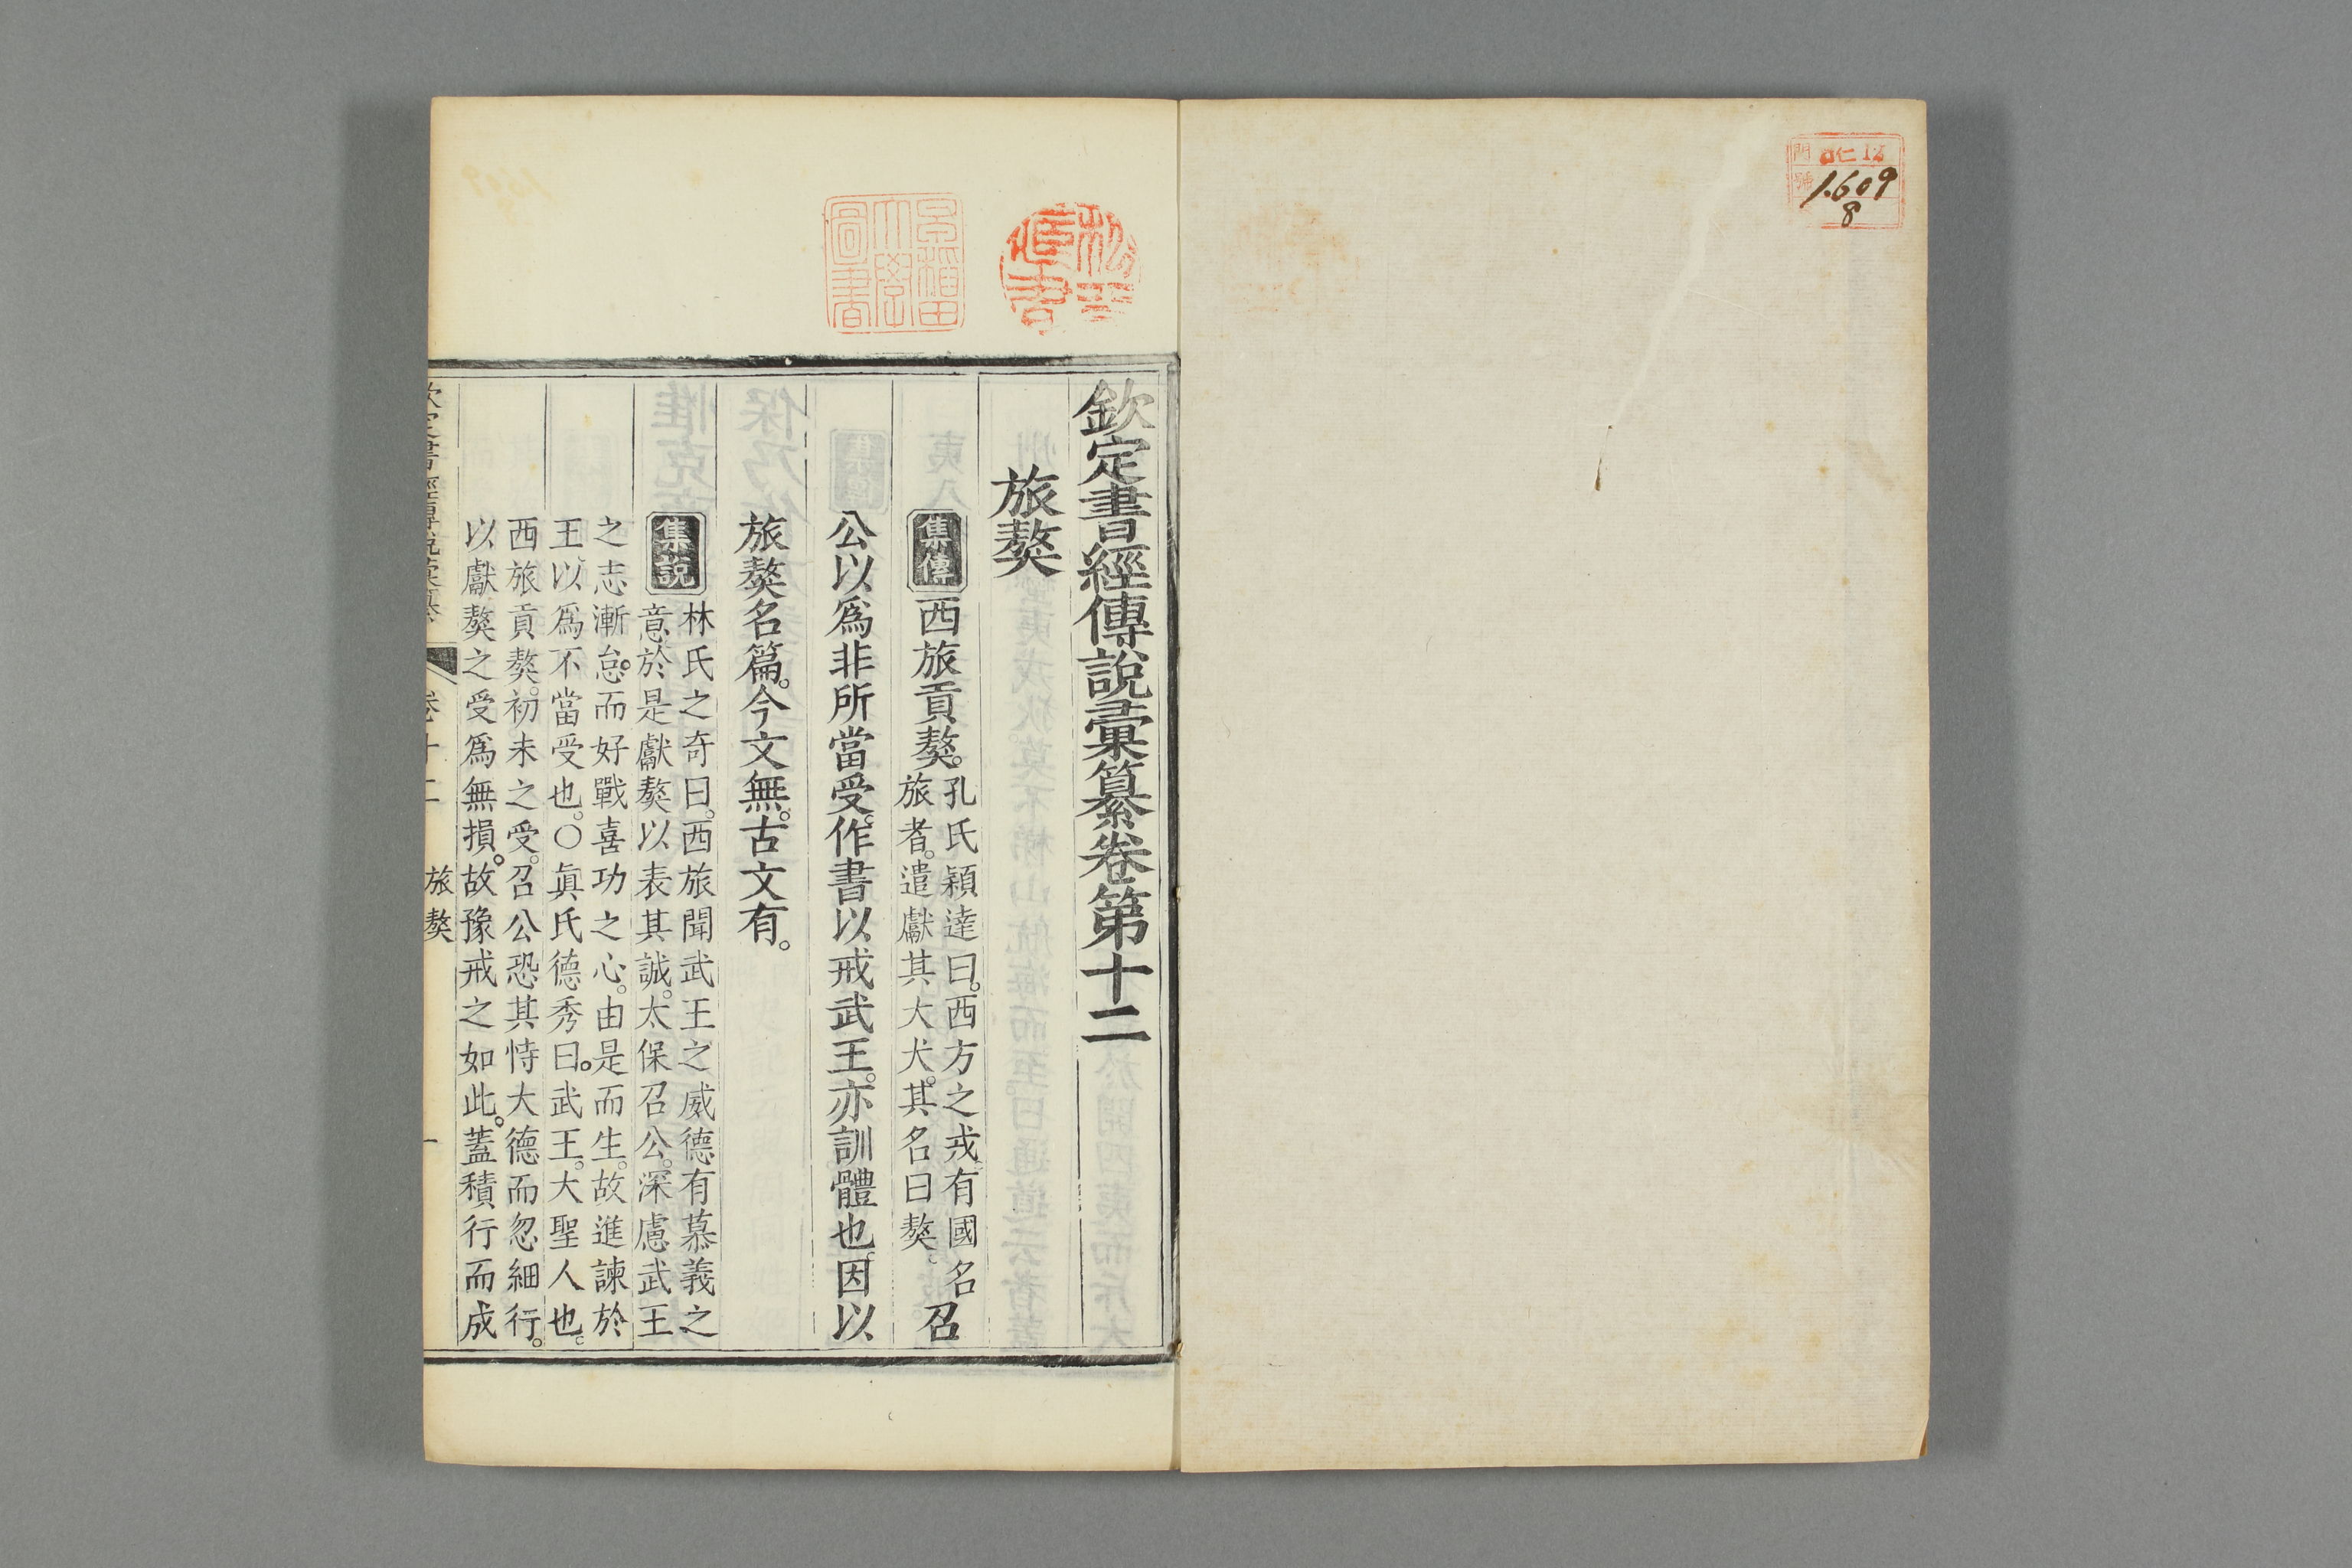 門 12
號 1609
8
早稲田大學圖書
欽定書經傳說彙纂卷第十二
旅獒
集傳 西旅貢獒。孔氏穎達曰。西方之戎有國名
旅者。遣獻其大犬。其名曰獒。召
公以爲非所當受。作書以戒武王。亦訓體也。因以
旅獒名篇。今文無。古文有。
集說 林氏之奇曰。西旅聞武王之威德有慕義之
意於是獻獒以表其誠。太保召公。深慮武王
之志漸怠。而好戰喜功之心。由是而生。故進諫於
王。以爲不當受也。〇眞氏德秀曰。武王。大聖人也。
西旅貢獒。初未之受。召公恐其恃大德而忽細行。
以獻獒之受爲無損。故豫戒之如此。蓋積行而成
欽定書經傳說彙纂 卷十二 旅獒 一